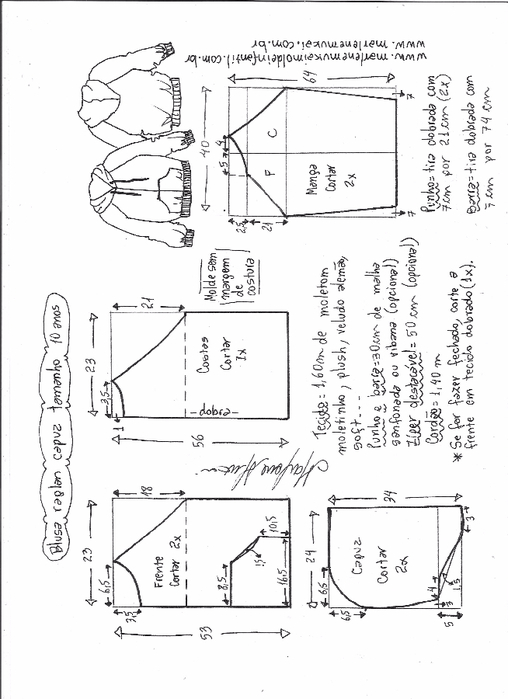 Blusa raglan capuz tamanho 10 anos
23
6,5
3,5
18
53
Frente
Cortar 2x
8,5
15
10,5
16,5
23
3,5
1
21
56
Costas
Cortar
1x
dobra
Molde sem
margem
de
costura
24
6,5
6,5
34
Capuz
Cortar
2x
4
3
5
1,5
3
Tecido = 1,60m de moletom
moletinho, plush, veludo alemão,
soft....
Punho e barra = 30cm de malha
sanfonada ou ribana (opcional)
Zíper destacável = 50 cm (opcional)
Cordão = 1,40 m
* Se for fazer fechado, corte a
frente em tecido dobrado (1x).
40
5
4
2,5
21
64
C
F
Manga
Cortar
2x
7
7
Punho = tira dobrada com
7cm por 21cm (2x)
Barra = tira dobrada com
7cm por 74cm
www.marlenemukaimoldeinfantil.com.br
www.marlenemukai.com.br